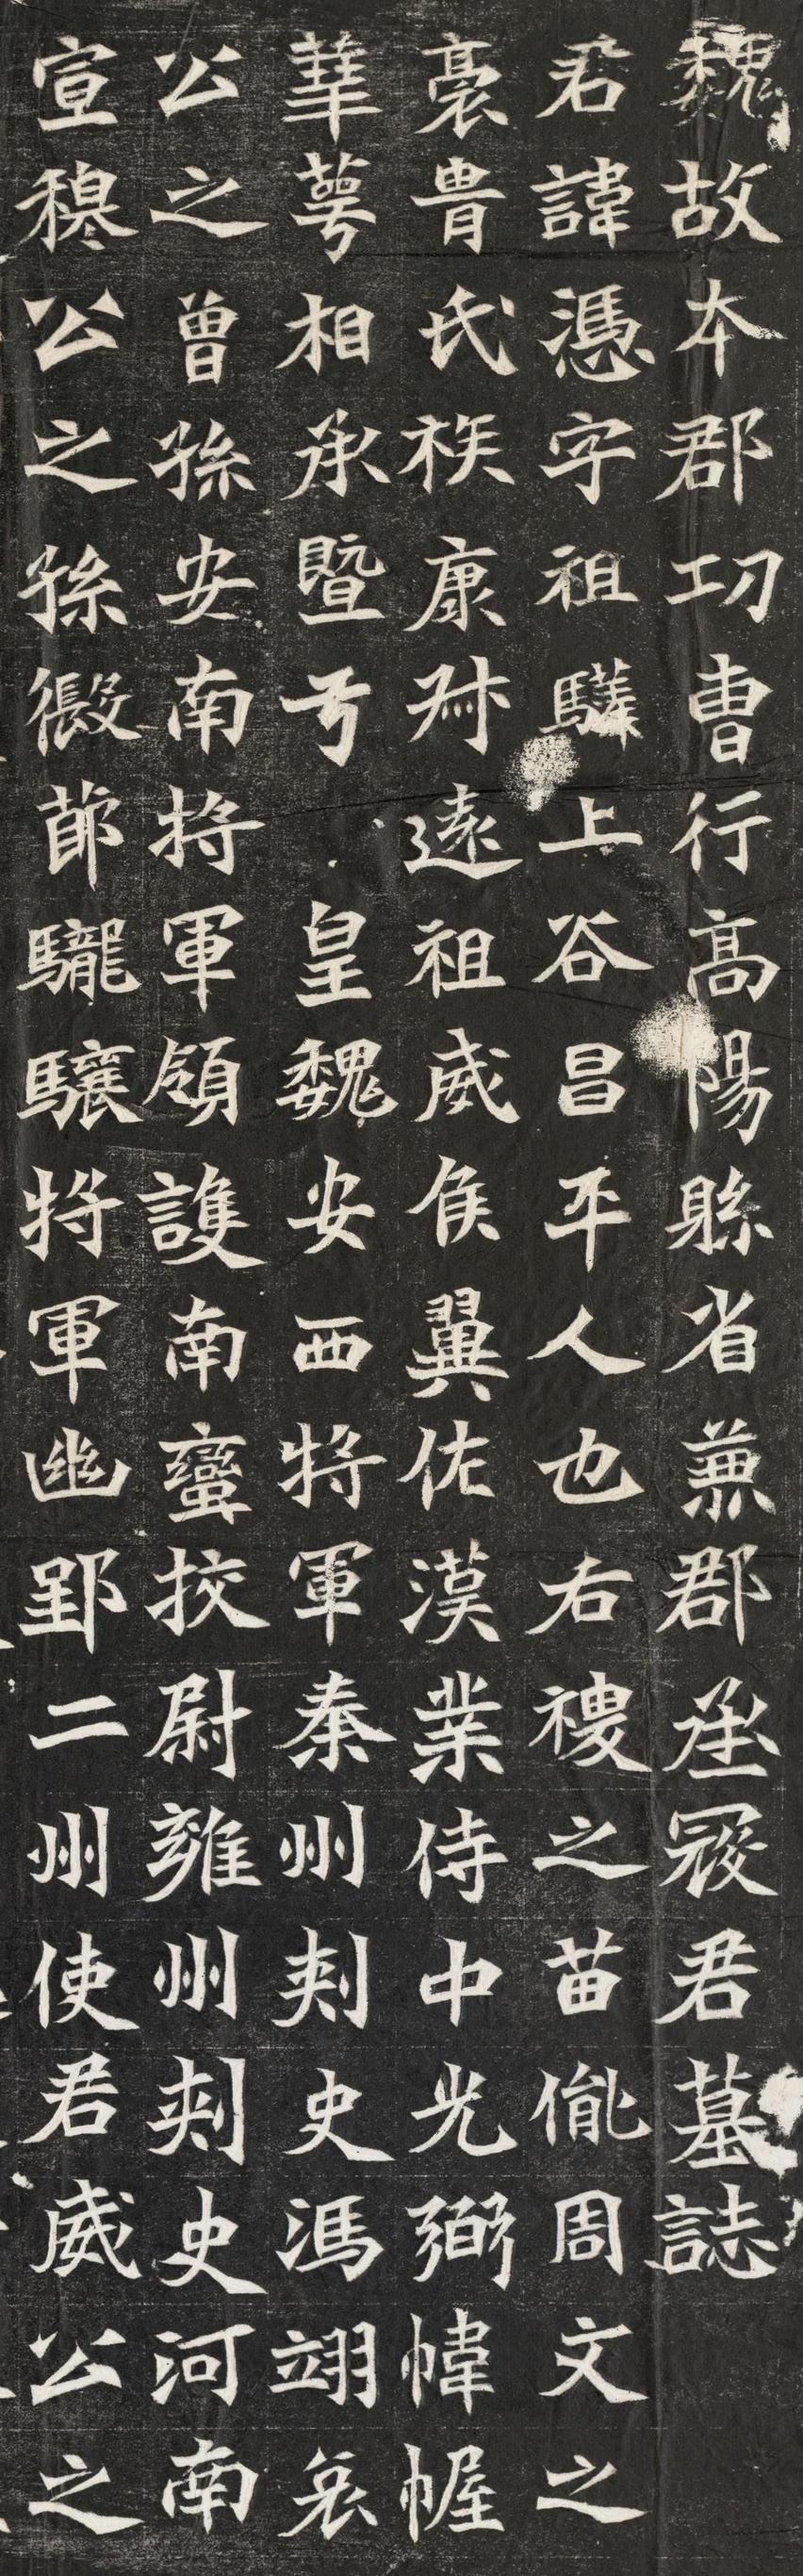 魏故本郡功曹行高陽縣省兼郡丞寇君墓誌
君諱憑字祖驊上谷昌平人也右禝之苗胤周文之
裔胄氏族康叔遠祖威侯翼佐漢業侍中光弼幃幄
華萼相承暨亏 皇魏安西將軍秦州刺史馮翊哀
公之曾孫安南將軍領護南蠻挍尉雍州刺史河南
宣穆公之孫假節䮾驤將軍幽郢二州使君威公之